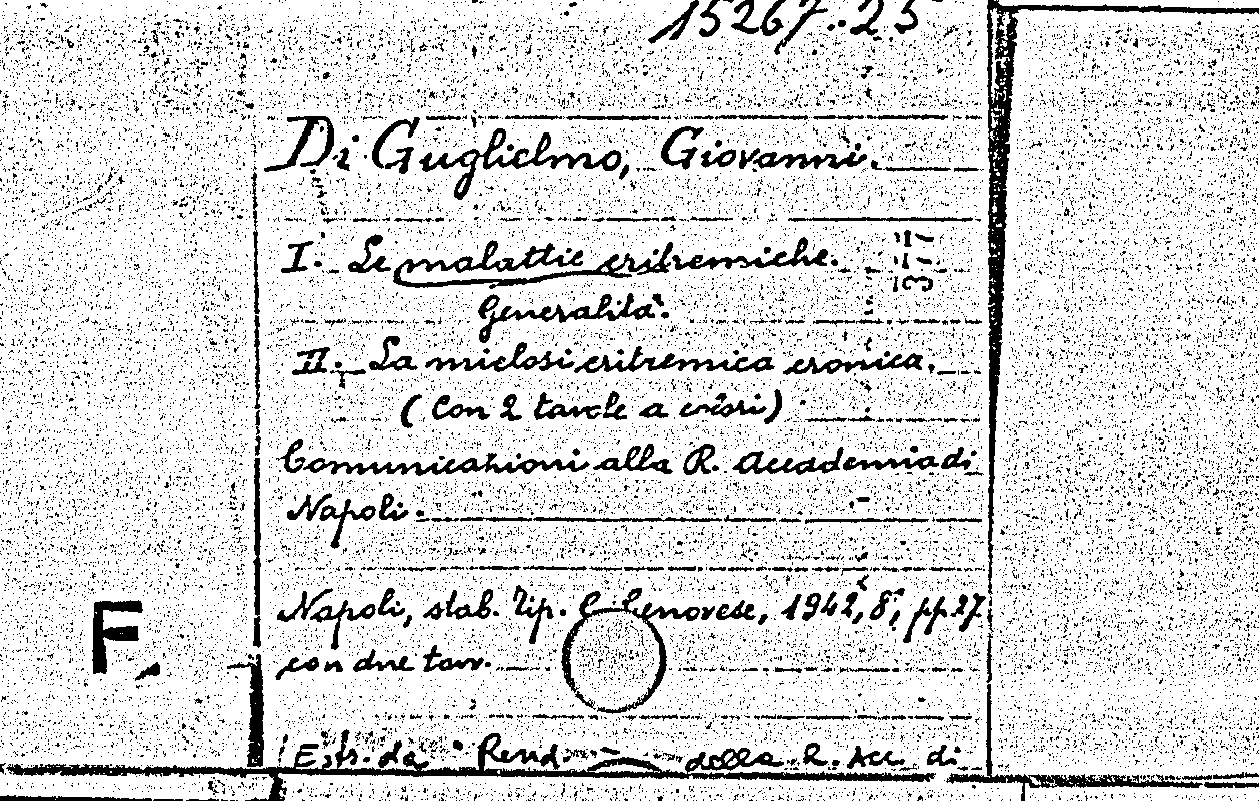 15267.25
Di Guglielmo, Giovanni.
I. Le malattie eritremiche.
Generalità.
II. La mielosi eritremica cronica.
(Con 2 tavole a colori)
Comunicazioni alla R. Accademia di
Napoli.
Napoli, stab. Tip. Genovese, 1942, 8°, pp. 27
con due tav.
F
Estr. da "Rend. della R. Acc. di